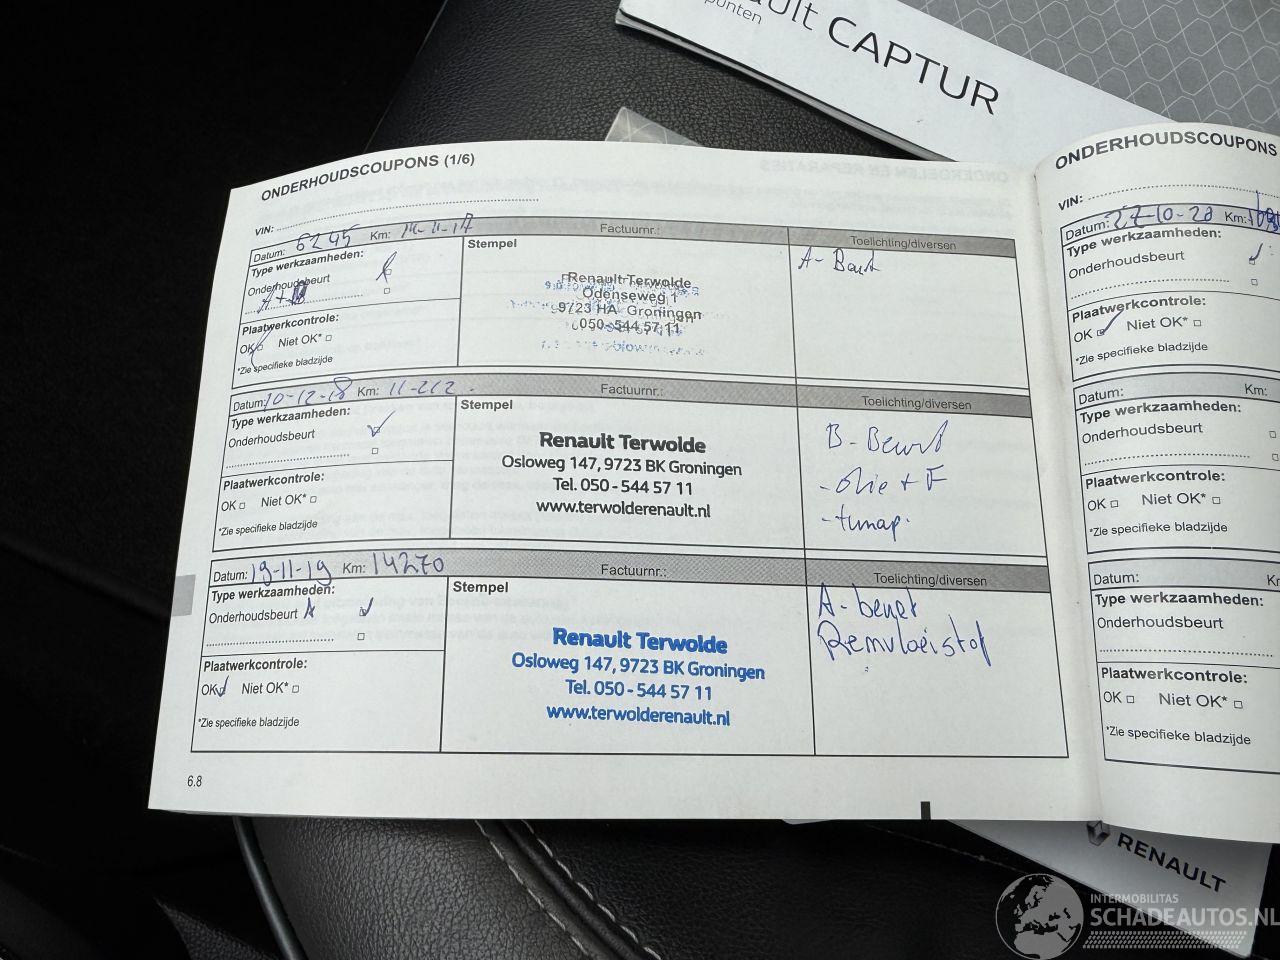 ult CAPTUR
punten
ONDERHOUDSCOUPONS (1/6)
VIN:
Datum: 6245 Km: 14-11-17 Factuurnr.: Toelichting/diversen
Type werkzaamheden:
Onderhoudsbeurt
Stempel
A-Beurt
Renault Terwolde
Odenseweg 1
9723 HA Groningen
050-544 57 11
Plaatwerkcontrole:
OK Niet OK*
*Zie specifieke bladzijde
Datum: 10-12-18 Km: 11-212 Factuurnr.: Toelichting/diversen
Type werkzaamheden:
Onderhoudsbeurt
Stempel
Renault Terwolde
Osloweg 147, 9723 BK Groningen
Tel. 050 - 544 57 11
www.terwolderenault.nl
B-Beurt
- Olie + F
Plaatwerkcontrole:
OK Niet OK*
*Zie specifieke bladzijde
Datum: 19-11-19 Km: 14270 Factuurnr.: Toelichting/diversen
Type werkzaamheden:
Onderhoudsbeurt A
Stempel
Renault Terwolde
Osloweg 147, 9723 BK Groningen
Tel. 050 - 544 57 11
www.terwolderenault.nl
A-beurt
Remvloeistof
Plaatwerkcontrole:
OK Niet OK*
*Zie specifieke bladzijde
6.8
ONDERHOUDSCOUPONS
VIN:
Datum: 27-10-20 Km:
Type werkzaamheden:
Onderhoudsbeurt
Plaatwerkcontrole:
OK Niet OK*
*Zie specifieke bladzijde
Datum: Km:
Type werkzaamheden:
Onderhoudsbeurt
Plaatwerkcontrole:
OK Niet OK*
*Zie specifieke bladzijde
Datum:
Type werkzaamheden:
Onderhoudsbeurt
Plaatwerkcontrole:
OK Niet OK*
*Zie specifieke bladzijde
RENAULT
INTERMOBILITAS
SCHADEAUTOS.NL